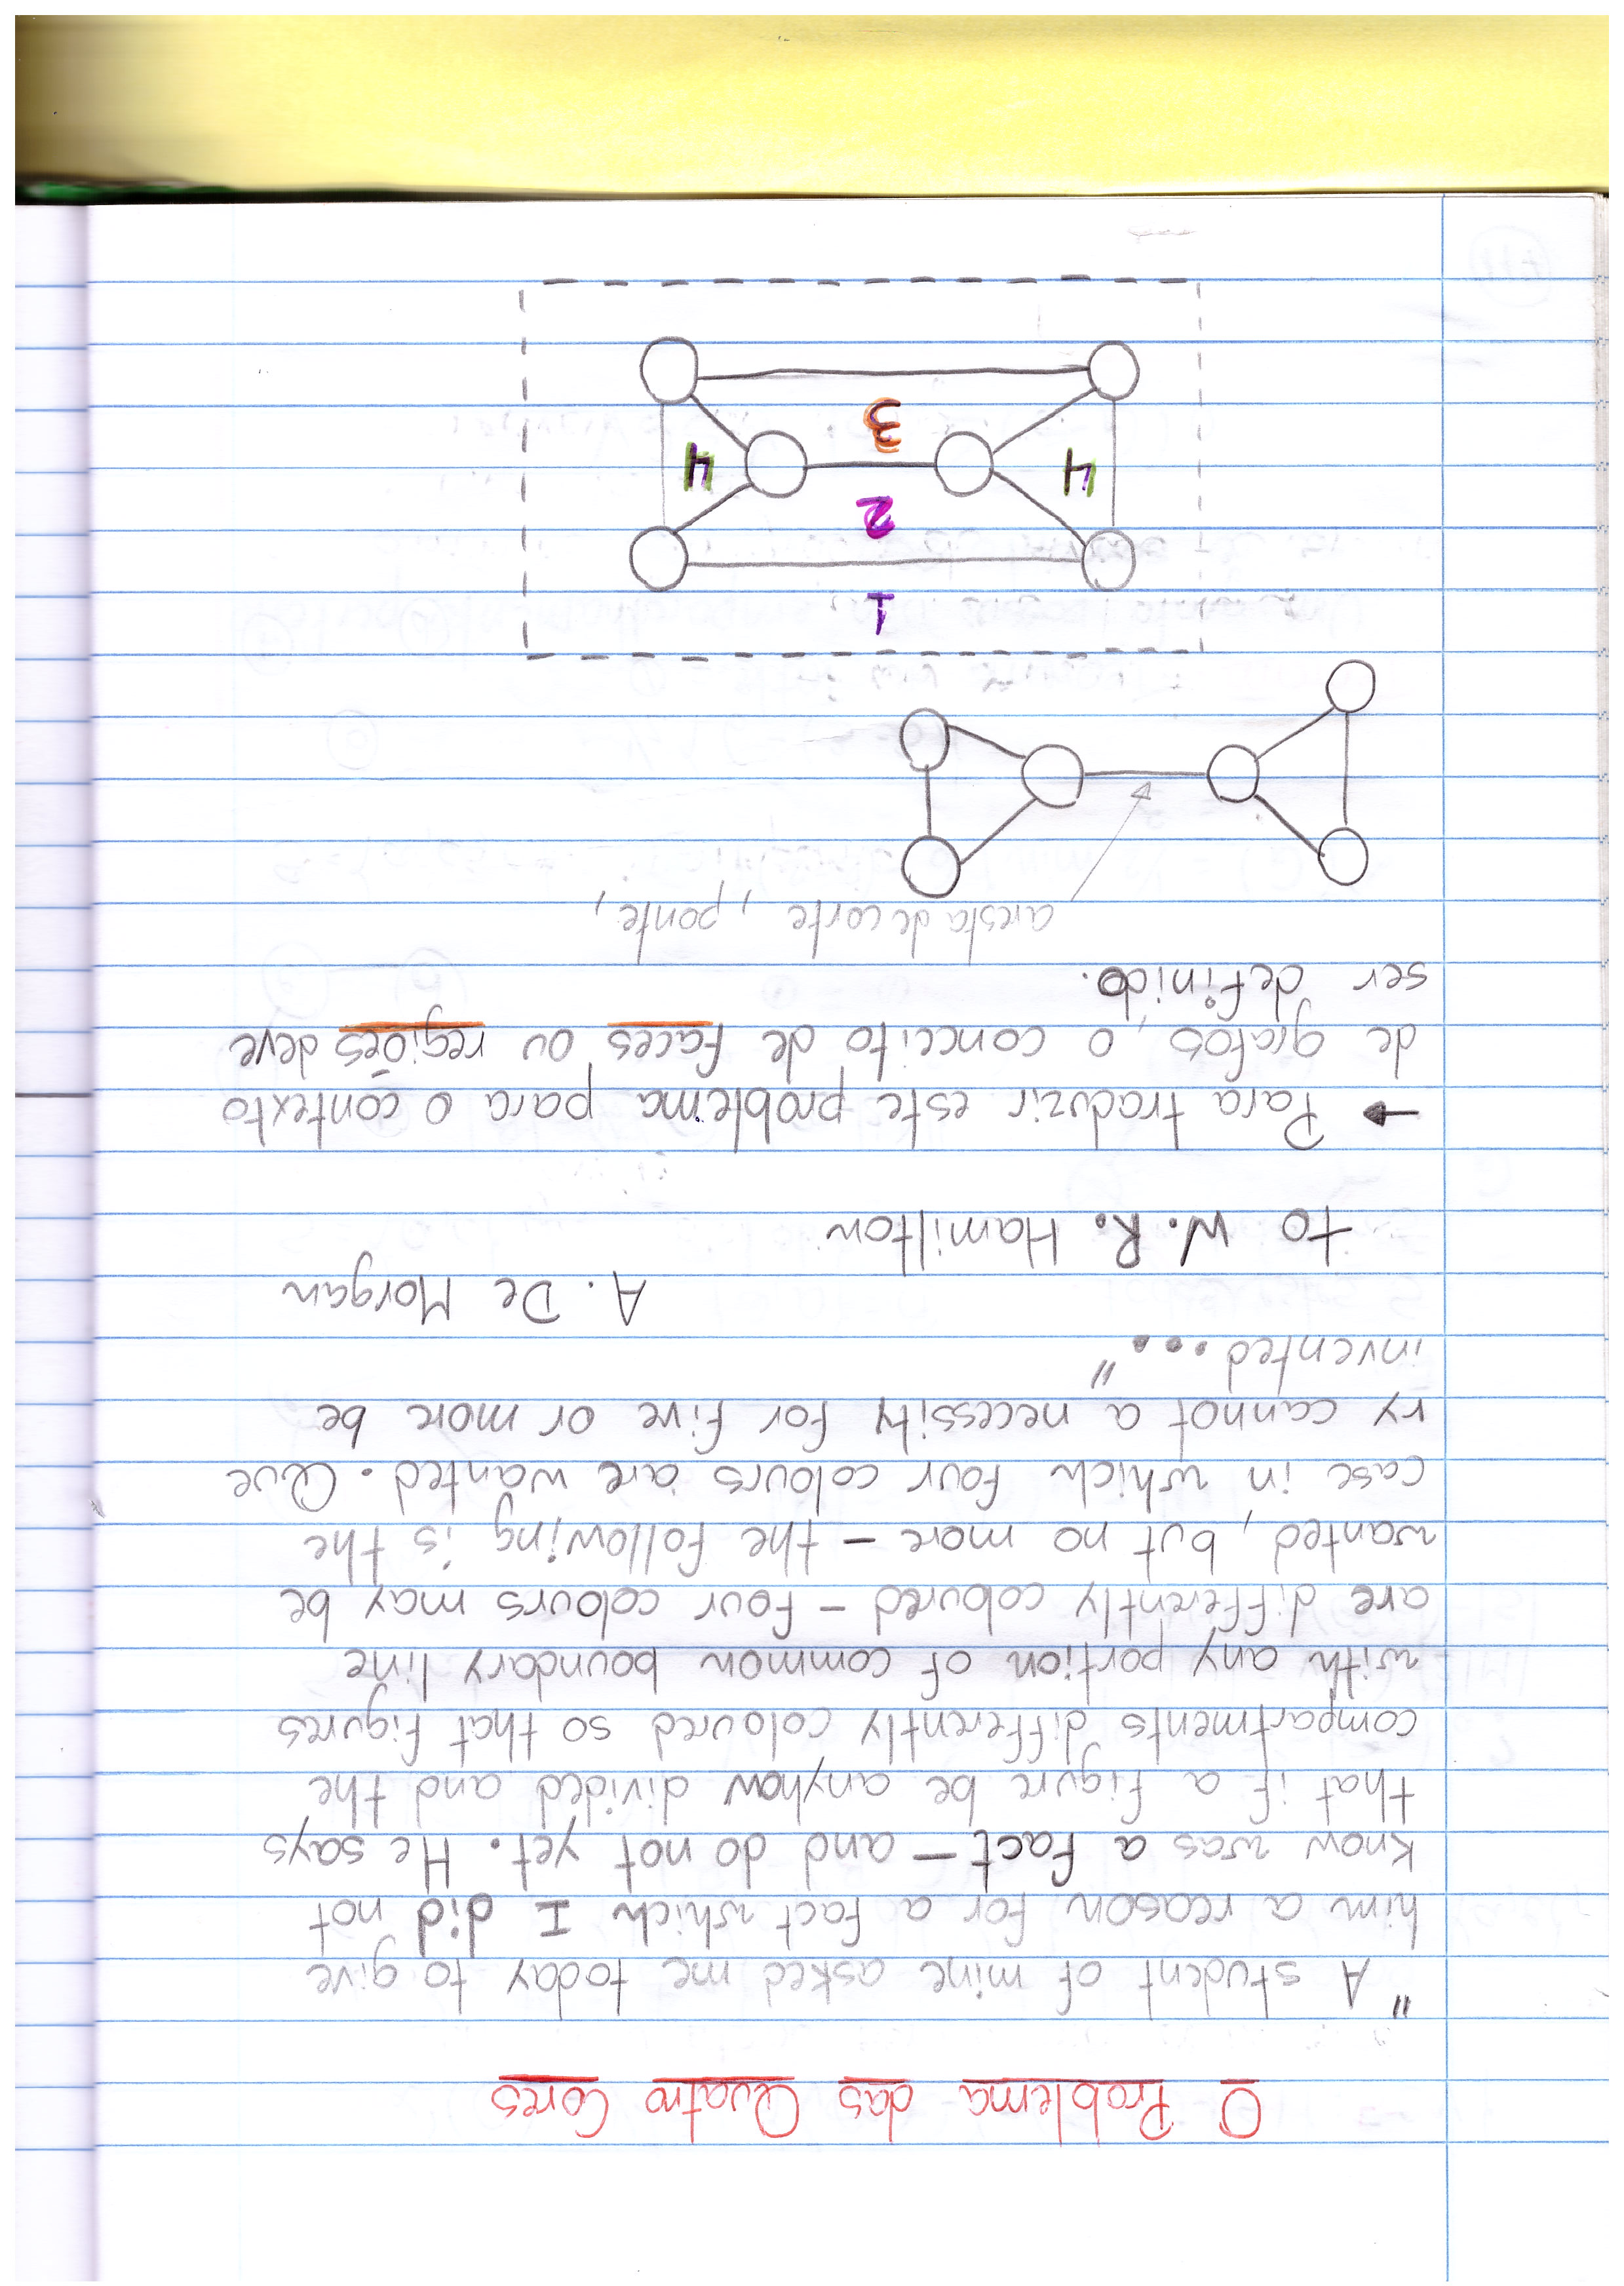 O Problema das Quatro Cores
"A student of mine asked me today to give
him a reason for a fact which I did not
know was a fact – and do not yet. He says
that if a figure be anyhow divided and the
compartments differently coloured so that figures
with any portion of common boundary line
are differently coloured – four colours may be
wanted, but no more – the following is the
case in which four colours are wanted. Que
ry cannot a necessity for five or more be
invented..."
A. De Morgan
to W. R. Hamilton
→ Para traduzir este problema para o contexto
de grafos, o conceito de faces ou regiões deve
ser definido.
aresta de corte, ponte,
1
2
4 4
3